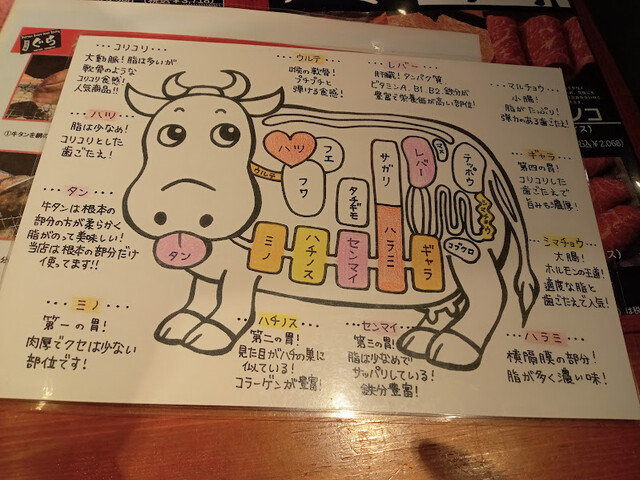 コリコリ
大動脈!脂は多いが
軟骨のような
コリコリ食感!
人気商品!!
ウルテ
喉の軟骨!
プチプチと
弾ける食感!
レバー
肝臓!タンパク質
ビタミンA、B1、B2、鉄分が
豊富で栄養価が高い部位!
マルチョウ
小腸!
脂がたっぷり!
弾力のある歯ごたえ!
ハツ
脂は少なめ!
コリコリとした
歯ごたえ!
ギャラ
第四の胃!
コリコリした
歯ごたえで
旨みも濃厚!
タン
牛タンは根本の
部分の方が柔らかく
脂がのって美味しい!
当店は根本の部分だけ
使ってます!!
シマチョウ
大腸!
ホルモンの王道!
適度な脂と
歯ごたえで人気!
ミノ
第一の胃!
肉厚でクセは少ない
部位です!
ハチノス
第二の胃!
見た目がハチの巣に
似ている!
コラーゲンが豊富!
センマイ
第三の胃!
脂は少なめで
サッパリしている!
鉄分豊富!
ハラミ
横隔膜の部分!
脂が多く濃い味!
ウルテ
ハツ
フエ
フワ
タチギモ
サガリ
レバー
マメ
テッポウ
シマチョウ
コブクロ
タン
ミノ
ハチノス
センマイ
ハラミ
ギャラ
ぐら
①牛タンを網
ノコ
¥2,068